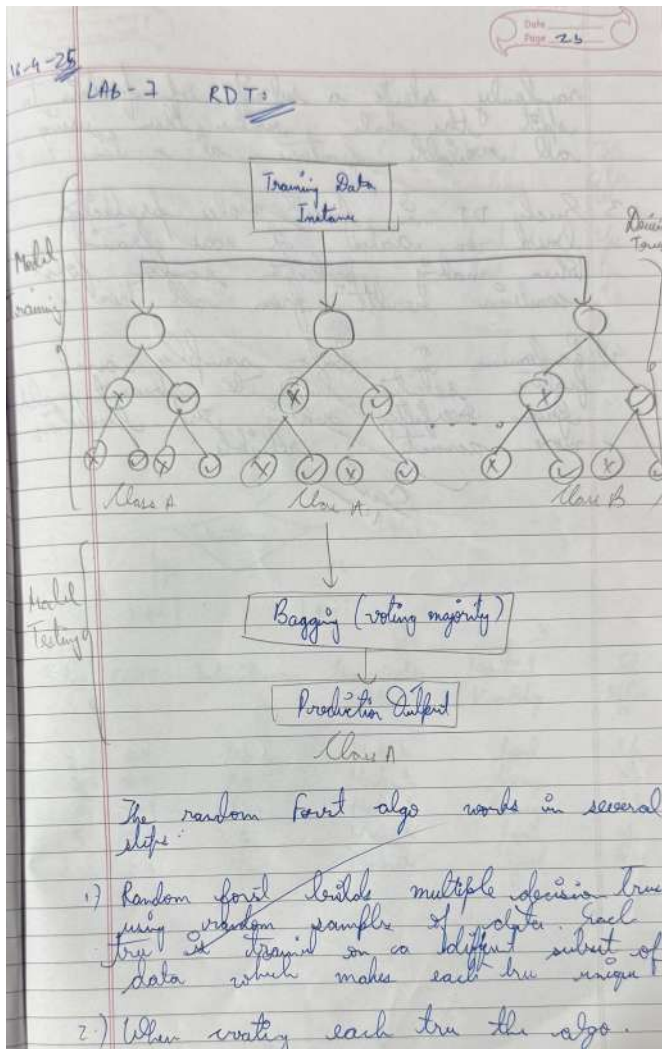 Date
Page 25
16-4-25
LAB-7 RDT:
Training Data
Instance
Model
Training
Class A
Class A
Class B
Model
Testing
Bagging (voting majority)
Prediction Output
Class A
The random Forest algo works in several
steps:
1) Random forest builds multiple decision tree
using random samples of data. Each
tree is train on a different subset of
data which makes each tree unique
2.) When creating each tree the algo.